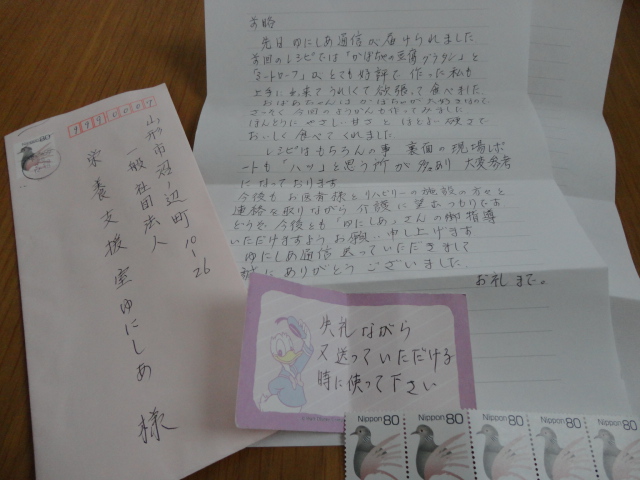 前略
先日 ゆにしあ通信が届けられました
今回のレシピでは「かぼちゃの豆腐グラタン」と
「ミートローフ」は とても好評で 作った私も
上手に出来てうれしくて欲張って食べました
おばあちゃんは かぼちゃが 大好きなので
さっそく 今回のようかんも作ってみました
ほんとうに やさしい甘さと ほどよい硬さで
おいしく 食べてくれました
レシピはもちろんの事 裏面の現場レポ
ートも「ハッ」と思う所が多々あり 大変参考
になっております
今後も お医者様とリハビリーの施設の方々と
連絡を取りながら 介護に 笑あっもりです
どうぞ 今後とも「ゆにしあ」さんの御指導
いただけますよう お願い 申し上げます
ゆにしあ通信 送っていただきまして
誠に ありがとう ございました
お礼まで。
9990007
Nippon 80
山形市沼ノ辺町10-26
一般社団法人
栄養支援室ゆにしあ 様
失礼ながら
又送っていただける
時に使って下さい
Nippon 80
Nippon 80
Nippon 80
Nippon 80
Nippon 80